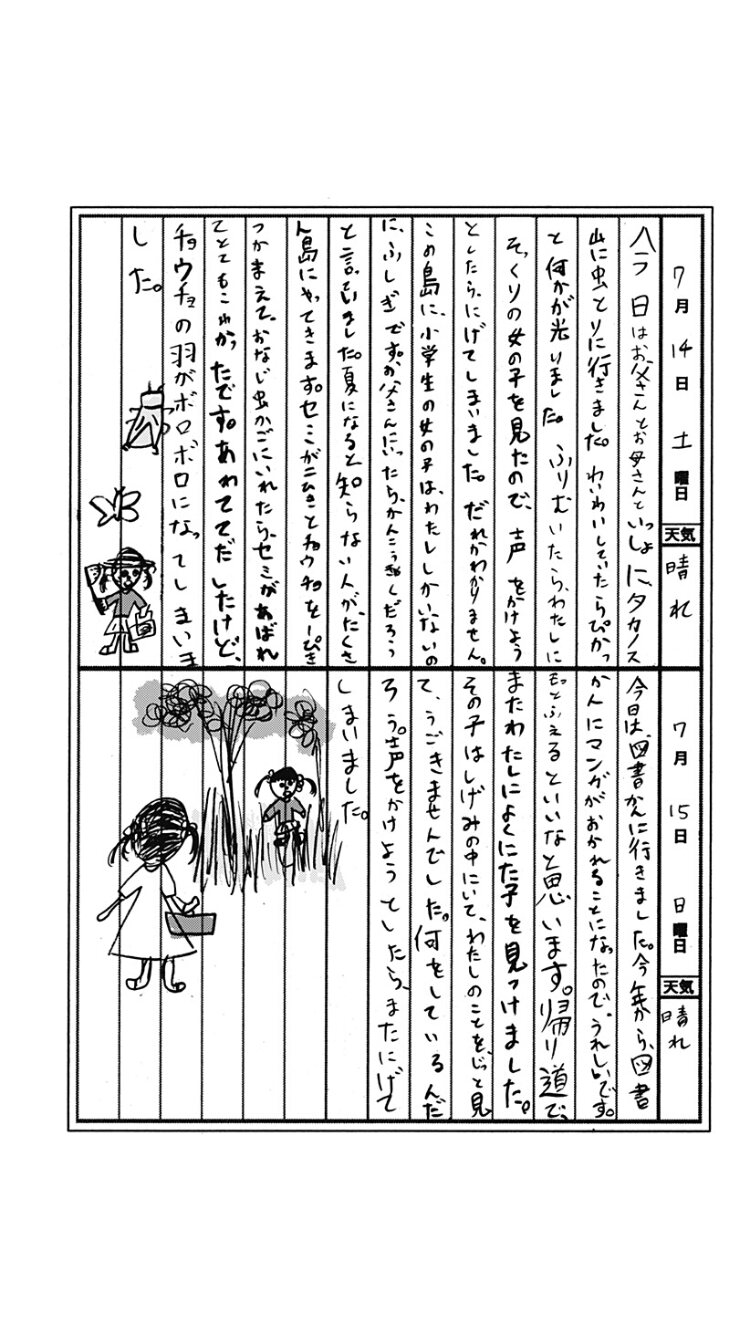 7月14日 土曜日 天気 晴れ
今日はお父さんとお母さんといっしょに、タカノス
山に虫とりに行きました。わいわいしていたらぴかっ
と何かが光りました。ふりむいたら、わたしに
そっくりの女の子を見たので、声をかけよう
としたら、にげてしまいました。だれかわかりません。
この島に、小学生の女の子は、わたししかいないの
に、ふしぎです。お父さんにいったら、かんこうきゃくだろう
と言っていました。夏になると知らない人が、たくさ
ん島にやってきます。セミが二ひきとチョウチョを一ぴき
つかまえて、おなじ虫かごにいれたら、セミがあばれ
てとてもこわかったです。あわててだしたけど、
チョウチョの羽がボロボロになってしまいま
した。
7月15日 日曜日 天気 晴れ
今日は、図書かんに行きました。今年から、図書
かんにマンガがおかれることになったので。うれしいです。
もっとふえるといいなと思います。帰り道で、
またわたしによくにた子を見つけました。
その子はしげみの中にいて、わたしのことを、じっと見
て、うごきませんでした。何をしているんだ
ろう。声をかけようとしたら、またにげて
しまいました。